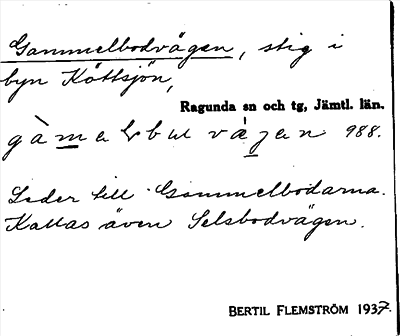 Gammelbodvägen, stig i
byn Köttsjön,
Ragunda sn och tg, Jämtl. län.
988.
Leder till Gammelbodarna.
Kallas även Selsbodvägen.
BERTIL FLEMSTRÖM 1937.